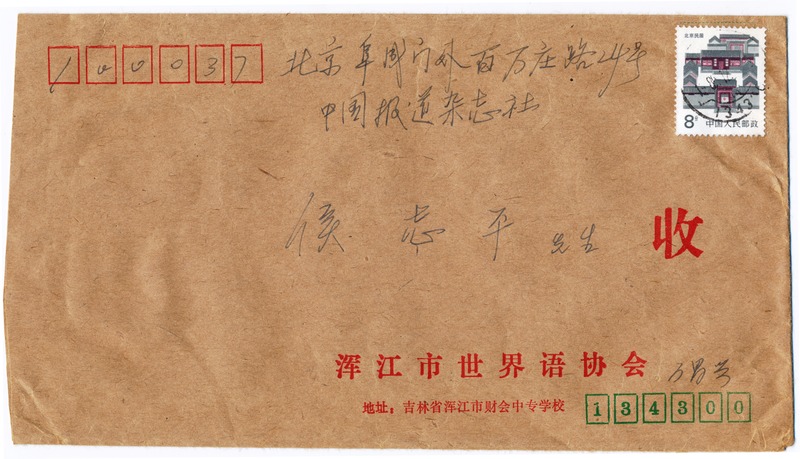 100037
北京阜成门外百万庄路24号
中国报道杂志社
侯志平 先生 收
浑江市世界语协会
地址：吉林省浑江市财会中专学校 134300
北京民居
8分 中国人民邮政
1343